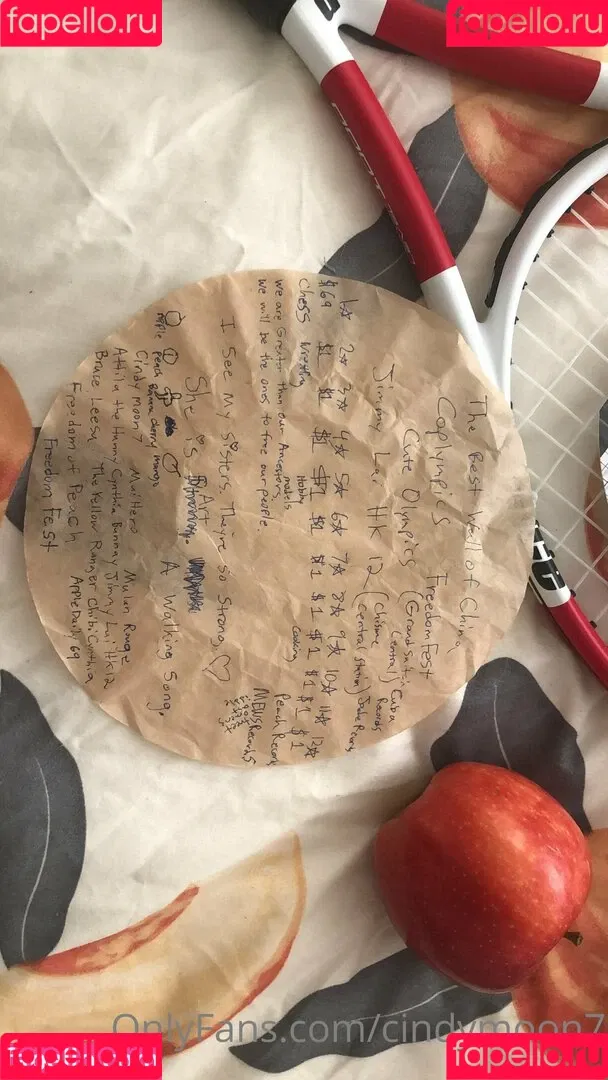 fapello.ru
fapello.ru
The Best Wall of China
Coplympics FreedomFest
Cute Olympics (Grand satin Central) Cuba Records
Jimmy Lai HK 12 (Chisme Central Station)
1☆ 2☆ 3☆ 4☆ 5☆ 6☆ 7☆ 8☆ 9☆ 10☆ 11☆ 12☆
$69 $1 $1 $1 $1 $1 $1 $1 $1 $1 $1 $1
Chess Wrestling Hobby Cooking Peach Records
We are Greater than our Ancestors,
we will be the ones to free our people.
MEWS Records
I See My Sisters. They're So Strong. ♡
She is Art A Walking Song.
Apple Peach Banana cherry mango
Cindy Moon 7 Mulhero Mulan Rouge
Attila the Hunny Cynthia Bunnay Jimmy Lai HK12
Bruce Leesy The Yellow Ranger Chibi Cynthia
Freedom of Peach Apple Daily 69
Freedom Fest
OnlyFans.com/cindymoon7
fapello.ru
fapello.ru